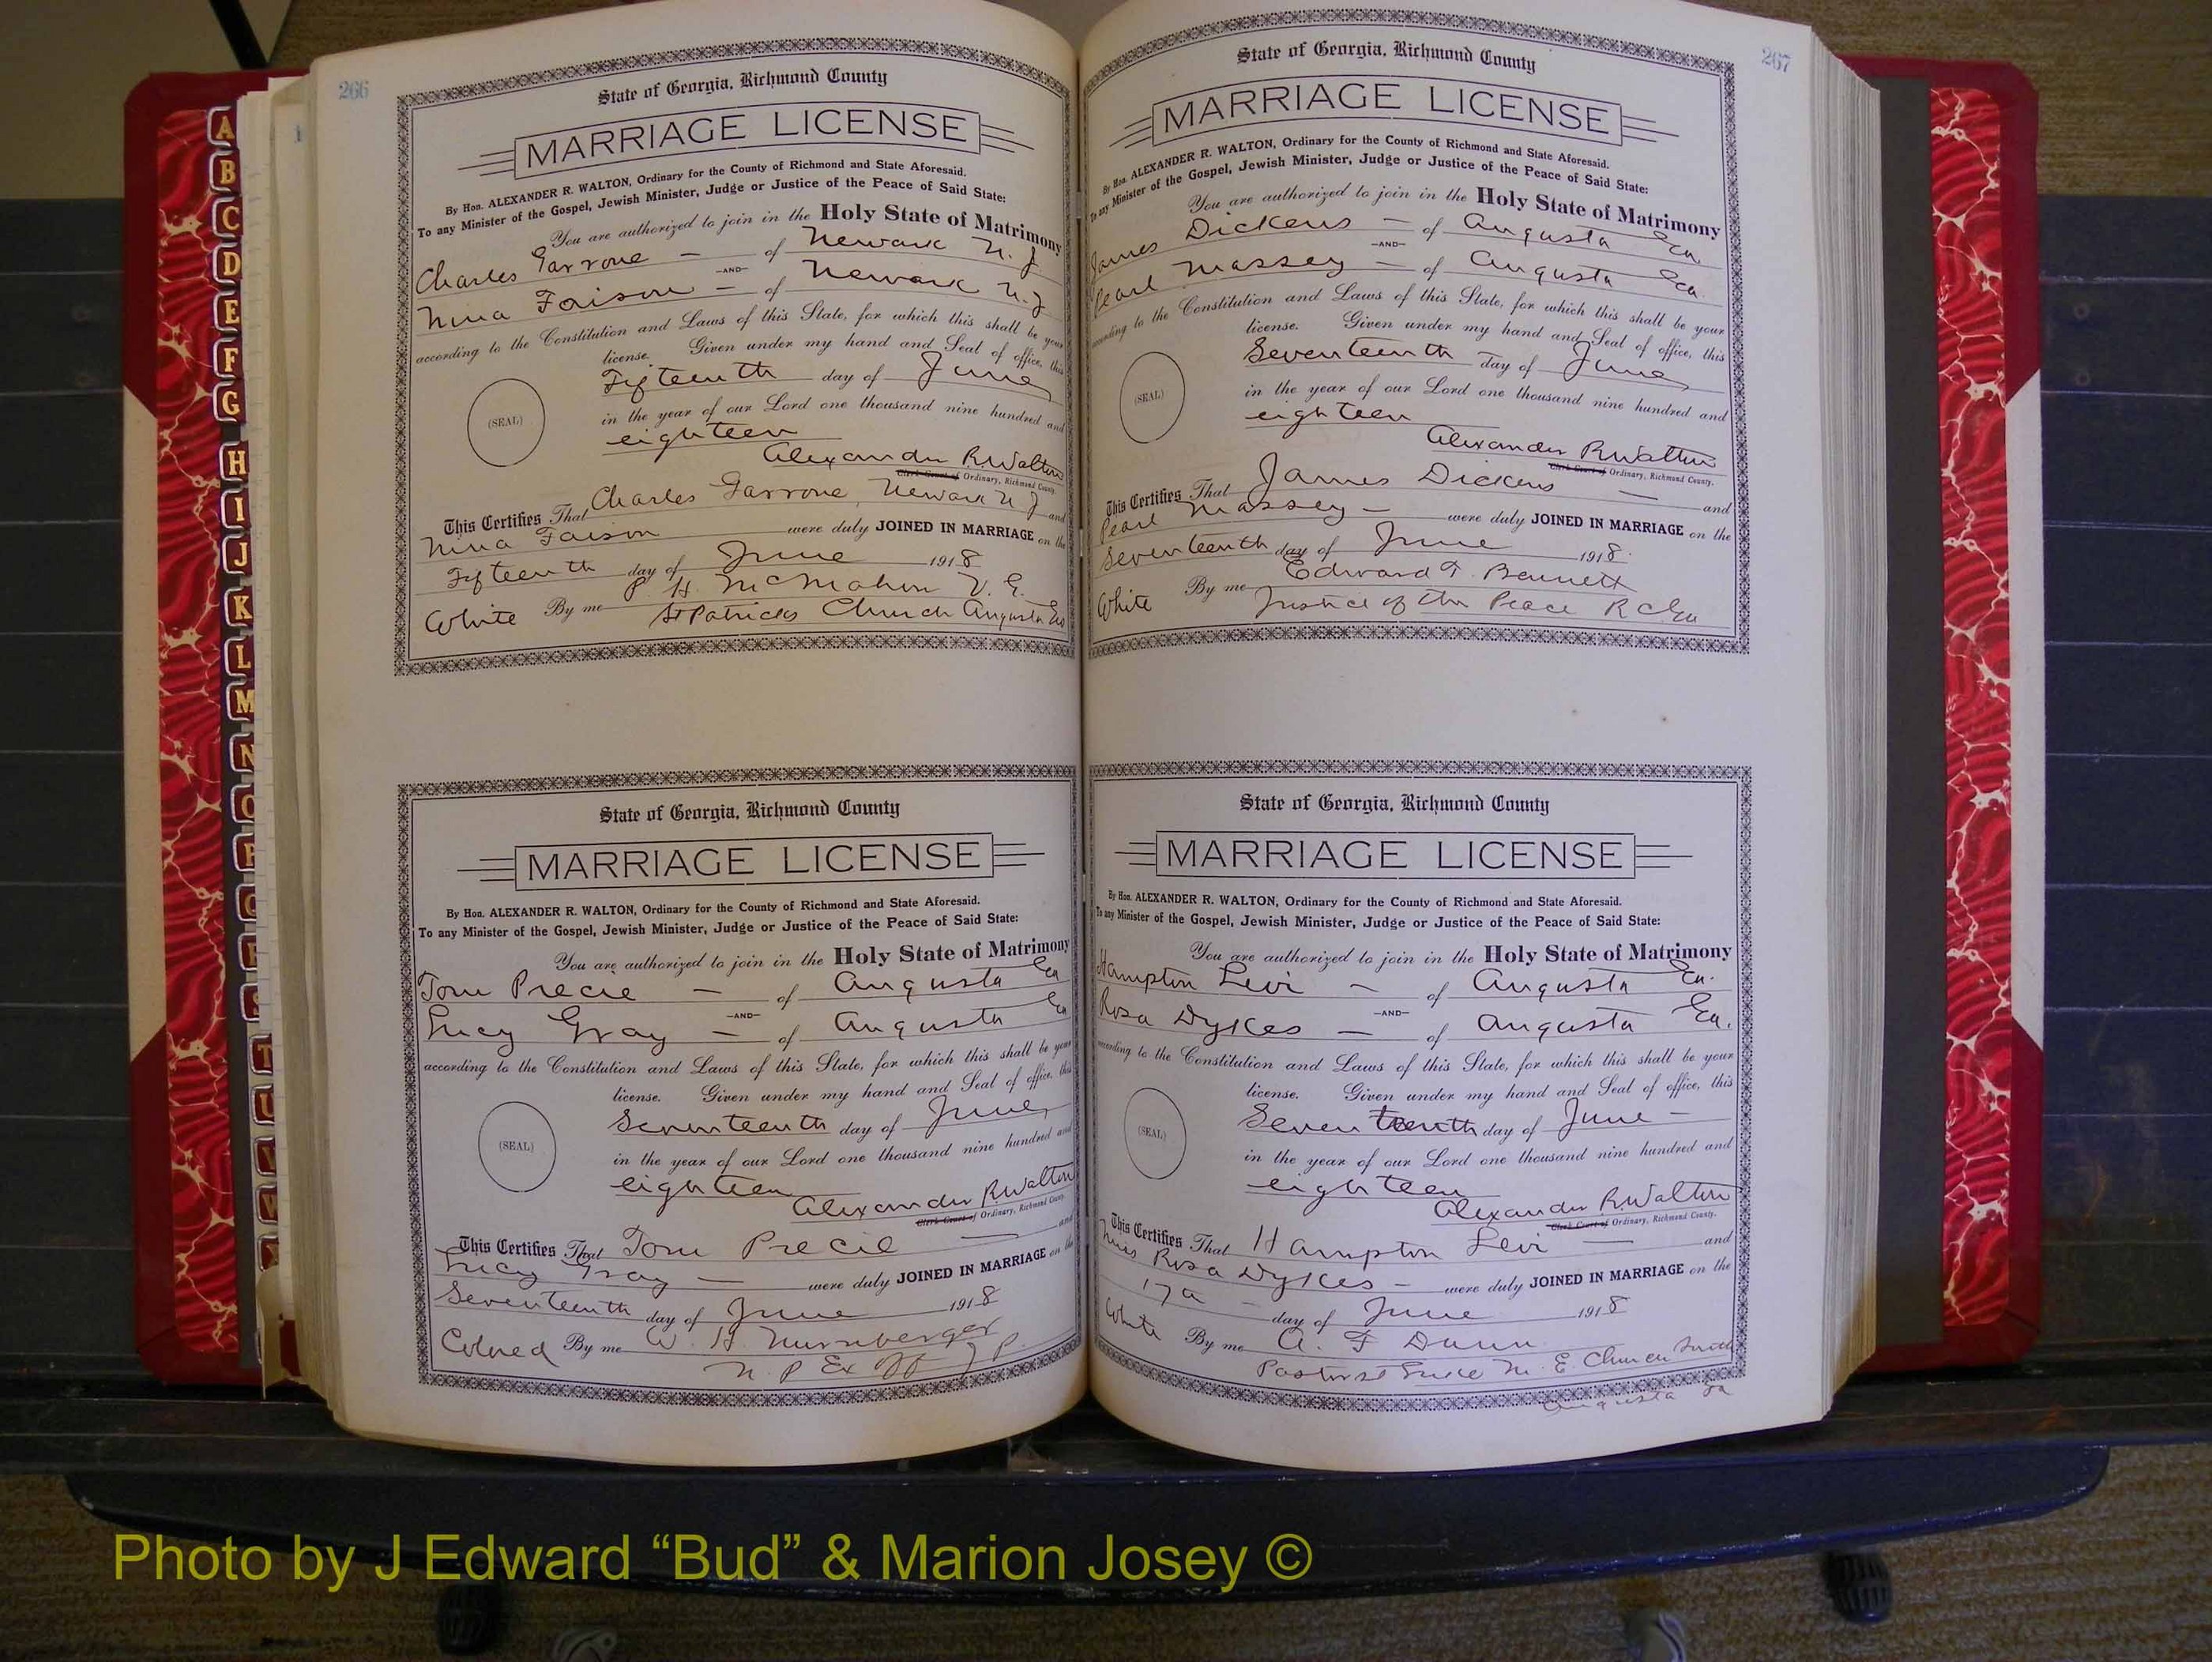 266
State of Georgia, Richmond County
MARRIAGE LICENSE
By Hon. ALEXANDER R. WALTON, Ordinary for the County of Richmond and State Aforesaid.
To any Minister of the Gospel, Jewish Minister, Judge or Justice of the Peace of Said State:
You are authorized to join in the Holy State of Matrimony
Charles Garrone — of Newark N. J
—AND—
Nina Faison — of Newark N. J
according to the Constitution and Laws of this State, for which this shall be your
license. Given under my hand and Seal of office, this
Fifteenth day of June
(SEAL)
in the year of our Lord one thousand nine hundred and
eighteen
Alexander R. Walton
Clerk Court of Ordinary, Richmond County.
This Certifies That Charles Garrone, Newark N J and
Nina Faison were duly JOINED IN MARRIAGE on the
Fifteenth day of June 1918
White By me P. H. McMahon V. G.
St Patricks Church Augusta Ga
State of Georgia, Richmond County
MARRIAGE LICENSE
By Hon. ALEXANDER R. WALTON, Ordinary for the County of Richmond and State Aforesaid.
To any Minister of the Gospel, Jewish Minister, Judge or Justice of the Peace of Said State:
You are authorized to join in the Holy State of Matrimony
Tom Precie — of Augusta Ga
—AND—
Lucy Gray — of Augusta Ga
according to the Constitution and Laws of this State, for which this shall be your
license. Given under my hand and Seal of office, this
Seventeenth day of June
(SEAL)
in the year of our Lord one thousand nine hundred and
eighteen
Alexander R. Walton
Clerk Court of Ordinary, Richmond County.
This Certifies That Tom Precie — and
Lucy Gray — were duly JOINED IN MARRIAGE on the
Seventeenth day of June 1918
Colored By me W. H. Nurnberger
N. P. Ex Off J P.
267
State of Georgia, Richmond County
MARRIAGE LICENSE
By Hon. ALEXANDER R. WALTON, Ordinary for the County of Richmond and State Aforesaid.
To any Minister of the Gospel, Jewish Minister, Judge or Justice of the Peace of Said State:
You are authorized to join in the Holy State of Matrimony
James Dickens — of Augusta Ga.
—AND—
Pearl Massey — of Augusta Ga.
according to the Constitution and Laws of this State, for which this shall be your
license. Given under my hand and Seal of office, this
Seventeenth day of June
(SEAL)
in the year of our Lord one thousand nine hundred and
eighteen
Alexander R. Walton
Clerk Court of Ordinary, Richmond County.
This Certifies That James Dickens — and
Pearl Massey — were duly JOINED IN MARRIAGE on the
Seventeenth day of June 1918.
White By me Edward T. Barnett
Justice of the Peace R C Ga
State of Georgia, Richmond County
MARRIAGE LICENSE
By Hon. ALEXANDER R. WALTON, Ordinary for the County of Richmond and State Aforesaid.
To any Minister of the Gospel, Jewish Minister, Judge or Justice of the Peace of Said State:
You are authorized to join in the Holy State of Matrimony
Hampton Levi — of Augusta Ga.
—AND—
Rosa Dykes — of Augusta Ga.
according to the Constitution and Laws of this State, for which this shall be your
license. Given under my hand and Seal of office, this
Seventeenth day of June —
(SEAL)
in the year of our Lord one thousand nine hundred and
eighteen
Alexander R. Walton
Clerk Court of Ordinary, Richmond County.
This Certifies That Hampton Levi — and
Miss Rosa Dykes — were duly JOINED IN MARRIAGE on the
17 day of June 1918
White By me A. F Dunn
Pastor St Luke M. E. Church South
Augusta Ga
A
B
C
D
E
F
G
H
I
J
K
L
M
N
O
P
Q
R
S
T
U
V
W
Photo by J Edward “Bud” & Marion Josey ©